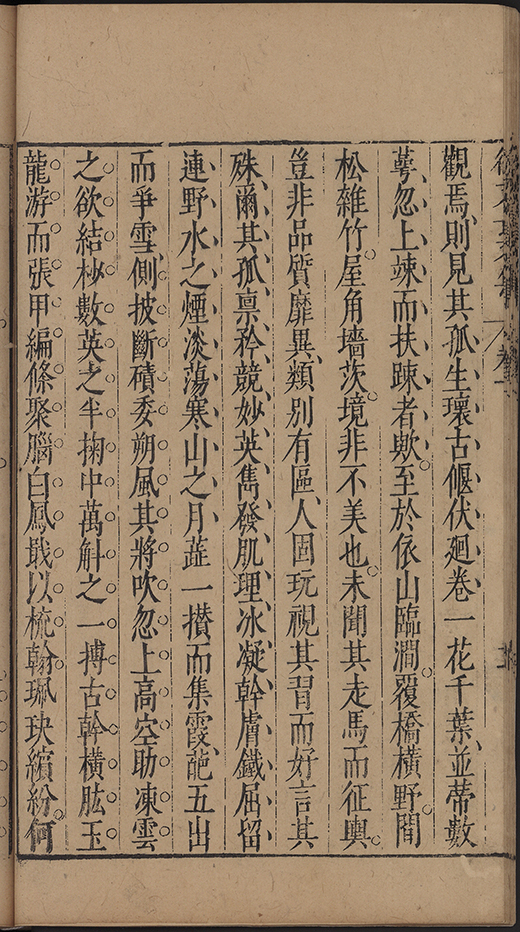 觀焉、則見其孤生瓌古偃伏廻卷一花千葉、並蒂數
萼、忽上竦而扶踈者歟。至於依山臨澗。覆橋橫野。間
松雜竹。屋角墻茨。境非不美也。未聞其走馬而征輿。
豈非品質靡異、類別有區、人固玩視其習而好言其
殊、爾其孤禀矜競、妙英雋發、肌理冰凝、幹膚鐵屈、留
連野水之煙、淡蕩寒山之月、蘤一攢而集霞、葩五出
而爭雪、側披斷磧、委朔風其將吹、忽上高空、助凍雲
之欲結、杪數英之半掬、中萬斛之一摶、古幹橫肱、玉
龍游而張甲、編條聚腦、白鳳戢以梳翰、珮玦繽紛。何